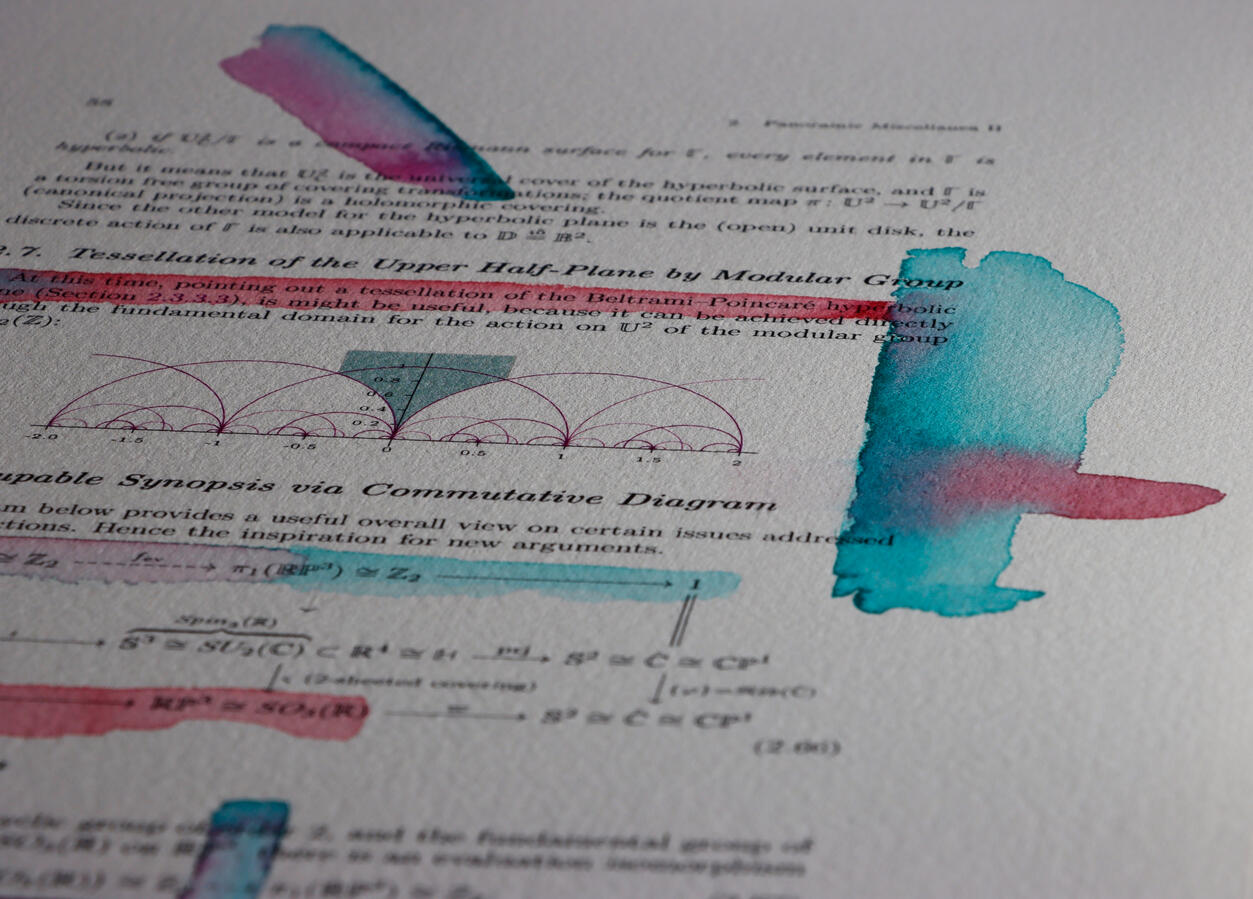 2 Panoramic Miscellanea II
hyperbolic.
is a compact Riemann surface for Γ, every element in Γ is
But it means that 𝕌² is the universal cover of the hyperbolic surface, and Γ is
a torsion free group of covering transformations; the quotient map π: 𝕌² → 𝕌²/Γ
(canonical projection) is a holomorphic covering.
Since the other model for the hyperbolic plane is the (open) unit disk, the
discrete action of Γ is also applicable to 𝔻
.7. Tessellation of the Upper Half-Plane by Modular Group
At this time, pointing out a tessellation of the Beltrami–Poincaré hyperbolic
(Section 2.3.3.3), is might be useful, because it can be achieved directly
the fundamental domain for the action on 𝕌² of the modular group
(ℤ):
1
0.8
0.6
0.4
0.2
-2.0 -1.5 -1 -0.5 0 0.5 1 1.5 2
Synopsis via Commutative Diagram
below provides a useful overall view on certain issues addressed
Hence the inspiration for new arguments.
≅ ℤ₂ → π₁(ℝP³) ≅ ℤ₂ → 1
Spin₃(ℝ)
→ S³ ≅ SU₂(ℂ) ⊂ ℝ⁴ ≅ ℍ → S² ≅ Ĉ ≅ ℂP¹
(2-sheeted covering)
→ ℝP³ ≅ SO₃(ℝ) → S² ≅ Ĉ ≅ ℂP¹
(2.66)
group of 2, and the fundamental group of
there is an evaluation isomorphism